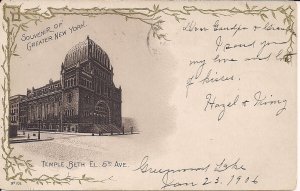 SOUVENIR OF
GREATER NEW YORK.
Dear Grandpa &
I send you
my love and lots
of kisses.
Hazel &
TEMPLE BETH EL 5TH AVE.
Greenwood Lake
Jan 23, 1906